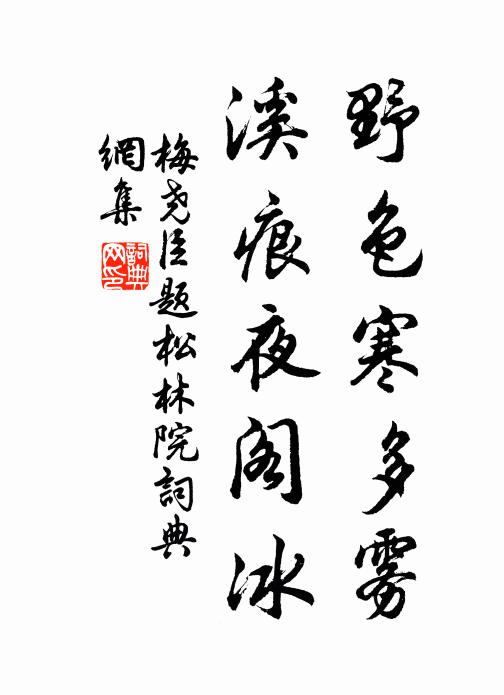 野色寒多雾
溪痕夜阁冰
梅尧臣题松林院词典
網集
詞典网印